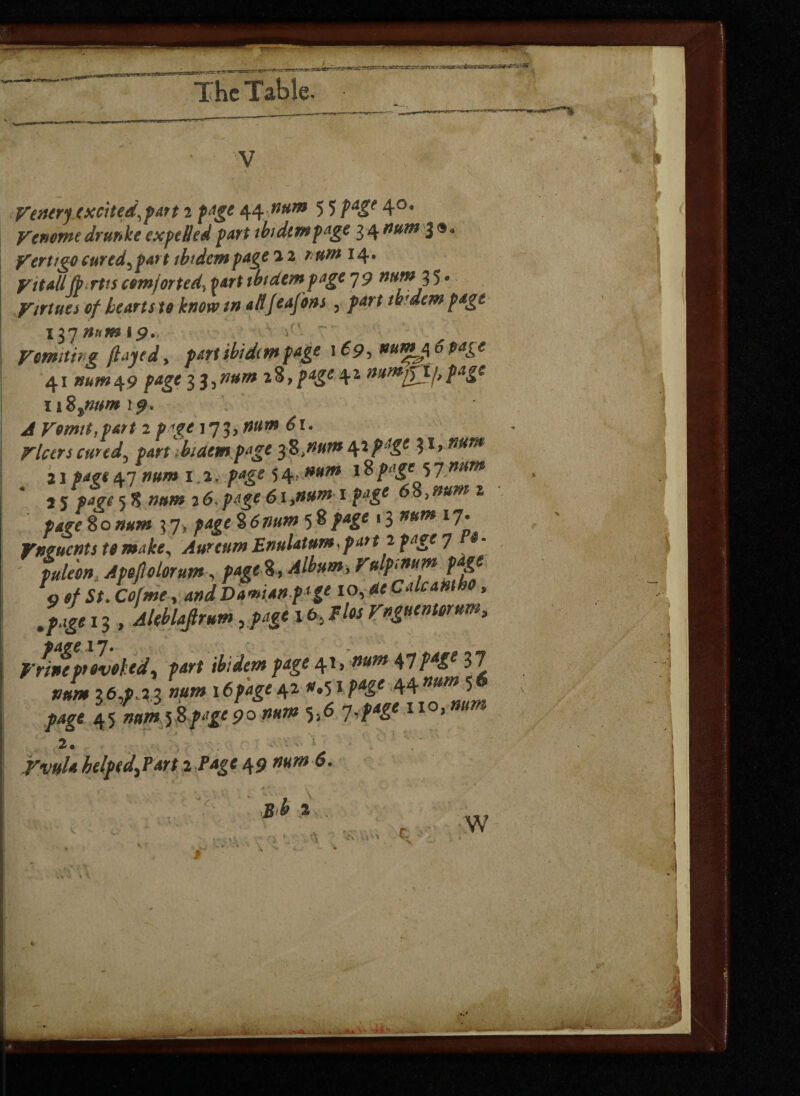 The Table.
V
Venery excited, part 2 page 44 num 55 page 40.
Venome drunke expelled part ibidem page 34 num 30.
Vertigo cured, part ibidem page 22 num 14.
Vitall sp rits comforted, part ibidem page 79 num 35.
Virtues of hearts to know in all seasons, part ibidem page
137 num 19.
Vomiting stayed, part ibidem page 169, num 46 page
41 num 49 page 33, num 28, page 42 num 51, page
118, num 19.
A Vomit, part 2 page 173, num 61.
Vlcers cured, part ibidem page 38, num 42 page 31, num
21 page 47 num 1.2. page 54. num 18 page 57 num
25 page 58 num 26. page 61, num 1 page 68, num 2
page 80 num 37, page 86 num 58 page 13 num 17.
Vnguents to make, Aureum Enulatum, part 2 page 7 Po-
puleon Apostolorum, page 8, Album, Vulpinum page
9 of St. Cosme, and Damian page 10, de Calcantho,
page 13, Aleblastrum, page 16, Flos Vnguentorum,
page 17.
Vrine provoked, part ibidem page 41, num 47 page 37
num 36, p. 23 num 16 page 42 n. 51 page 44 num 56
page 45 num 58 page 90 num 5, 6 7, page 110, num
2.
Vvula helped, Part 2 Page 49 num 6.
Bb 2
W